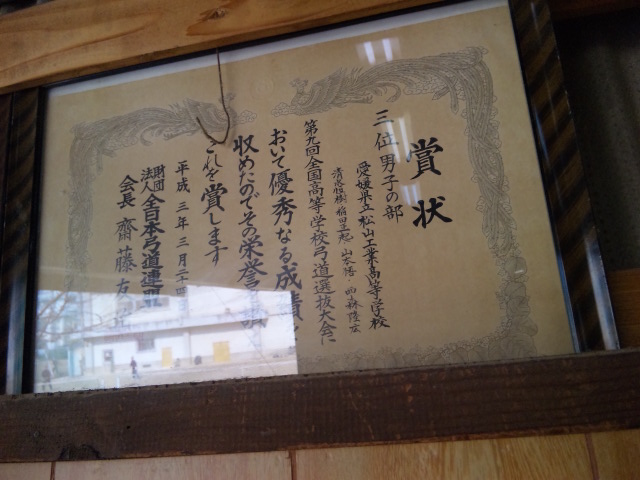 賞状
三位 男子の部
愛媛県立松山工業高等学校
第九回全国高等学校弓道選抜大会に
おいて優秀なる成績を
収めたのでその栄誉を讃
これを賞します
平成三年三月二十四
財団法人 全日本弓道連盟
会長 齋藤友